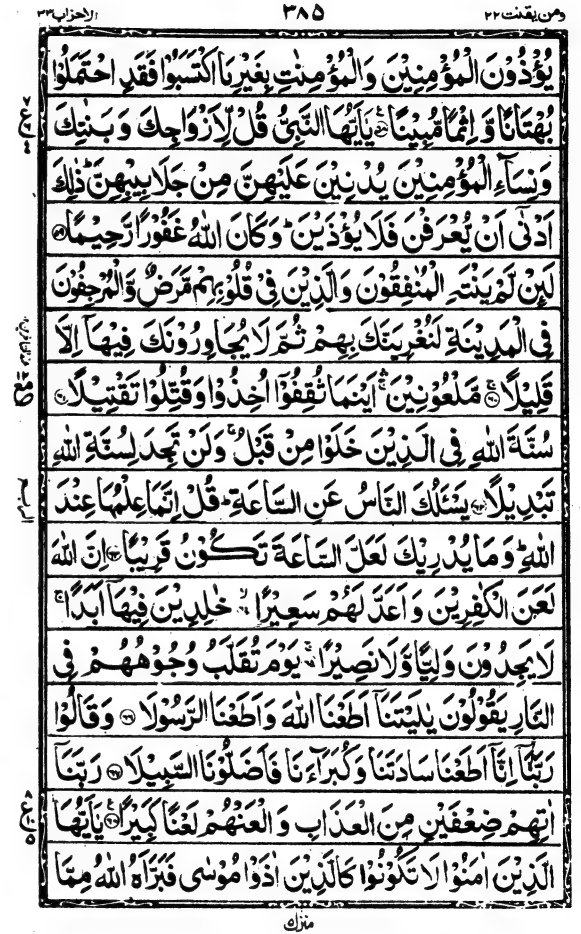 ومن يقنت ٢٢ ٣٨٥ الاحزاب ٣٣
يُؤْذُوْنَ الْمُؤْمِنِيْنَ وَالْمُؤْمِنٰتِ بِغَيْرِ مَا اكْتَسَبُوْا فَقَدِ احْتَمَلُوْا
بُهْتَانًا وَّاِثْمًا مُّبِيْنًا ۝٥٨ يٰٓاَيُّهَا النَّبِىُّ قُلْ لِّاَزْوَاجِكَ وَبَنٰتِكَ
وَنِسَآءِ الْمُؤْمِنِيْنَ يُدْنِيْنَ عَلَيْهِنَّ مِنْ جَلَابِيْبِهِنَّ ؕ ذٰلِكَ
اَدْنٰٓى اَنْ يُّعْرَفْنَ فَلَا يُؤْذَيْنَ ؕ وَكَانَ اللّٰهُ غَفُوْرًا رَّحِيْمًا ۝٥٩
لَئِنْ لَّمْ يَنْتَهِ الْمُنٰفِقُوْنَ وَالَّذِيْنَ فِىْ قُلُوْبِهِمْ مَّرَضٌ وَّالْمُرْجِفُوْنَ
فِى الْمَدِيْنَةِ لَنُغْرِيَنَّكَ بِهِمْ ثُمَّ لَا يُجَاوِرُوْنَكَ فِيْهَاۤ اِلَّا
قَلِيْلًا ۝٦٠ مَّلْعُوْنِيْنَ ۛ اَيْنَمَا ثُقِفُوْۤا اُخِذُوْا وَقُتِّلُوْا تَقْتِيْلًا ۝٦١
سُنَّةَ اللّٰهِ فِى الَّذِيْنَ خَلَوْا مِنْ قَبْلُ ۚ وَلَنْ تَجِدَ لِسُنَّةِ اللّٰهِ
تَبْدِيْلًا ۝٦٢ يَسْئَلُكَ النَّاسُ عَنِ السَّاعَةِ ؕ قُلْ اِنَّمَا عِلْمُهَا عِنْدَ
اللّٰهِ ؕ وَمَا يُدْرِيْكَ لَعَلَّ السَّاعَةَ تَكُوْنُ قَرِيْبًا ۝٦٣ اِنَّ اللّٰهَ
لَعَنَ الْكٰفِرِيْنَ وَاَعَدَّ لَهُمْ سَعِيْرًا ۝ خٰلِدِيْنَ فِيْهَاۤ اَبَدًا ۚ
لَا يَجِدُوْنَ وَلِيًّا وَّلَا نَصِيْرًا ۝ يَوْمَ تُقَلَّبُ وُجُوْهُهُمْ فِى
النَّارِ يَقُوْلُوْنَ يٰلَيْتَنَاۤ اَطَعْنَا اللّٰهَ وَاَطَعْنَا الرَّسُوْلَا ۝٦٦ وَقَالُوْا
رَبَّنَاۤ اِنَّاۤ اَطَعْنَا سَادَتَنَا وَكُبَرَآءَنَا فَاَضَلُّوْنَا السَّبِيْلَا ۝٦٧ رَبَّنَاۤ
اٰتِهِمْ ضِعْفَيْنِ مِنَ الْعَذَابِ وَالْعَنْهُمْ لَعْنًا كَبِيْرًا ۝٦٨ يٰٓاَيُّهَا
الَّذِيْنَ اٰمَنُوْا لَا تَكُوْنُوْا كَالَّذِيْنَ اٰذَوْا مُوْسٰى فَبَرَّاَهُ اللّٰهُ مِمَّا
منزل ٥